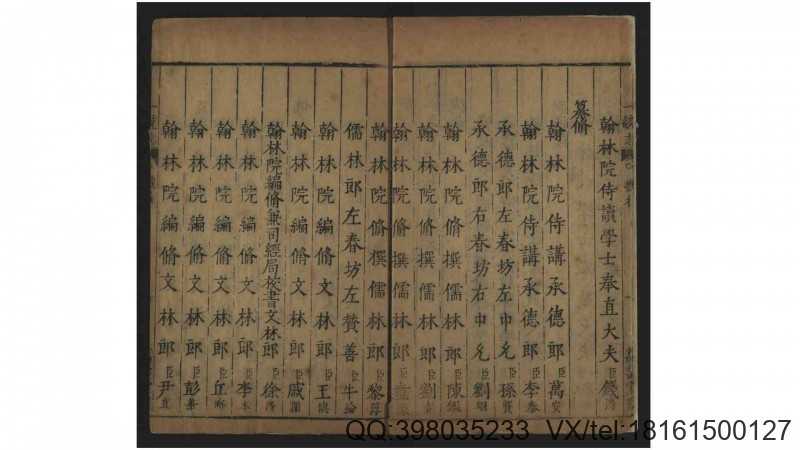 翰林院侍讀學士奉直大夫臣錢溥
纂脩
翰林院侍講承德郎臣萬安
翰林院侍講承德郎臣李泰
承德郎左春坊左中允臣孫賢
承德郎右春坊右中允臣劉珝
翰林院脩撰儒林郎臣陳鑑
翰林院脩撰儒林郎臣劉吉
翰林院脩撰儒林郎臣童緣
翰林院脩撰儒林郎臣黎淳
儒林郎左春坊左贊善臣牛綸
翰林院編脩文林郎臣王㒜
翰林院編脩文林郎臣戚瀾
翰林院編脩兼司經局校書文林郎臣徐溥
翰林院編脩文林郎臣李本
翰林院編脩文林郎臣丘濬
翰林院編脩文林郎臣彭華
翰林院編脩文林郎臣尹直
QQ:398035233 VX/tel:18161500127